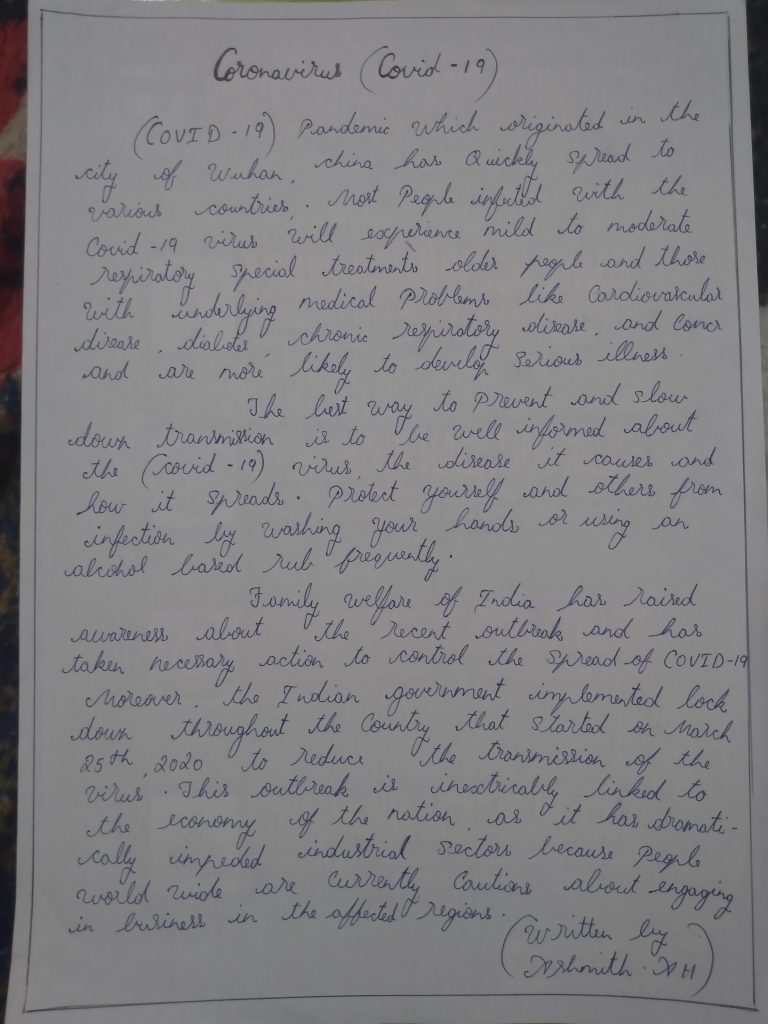 Coronavirus (Covid-19)
(COVID-19) Pandemic which originated in the
city of Wuhan, china has Quickly spread to
various countries. Most People infected with the
Covid-19 virus will experience mild to moderate
respiratory special treatments older people and those
with underlying medical Problems like Cardiovascular
disease, diabetes, chronic respiratory disease, and Concr
and are more likely to develop serious illness.
The best way to Prevent and slow
down transmission is to be well informed about
the (covid-19) virus, the disease it causes and
how it spreads. Protect yourself and others from
infection by washing your hands or using an
alcohol based rub frequently.
Family welfare of India has raised
awareness about the recent outbreak and has
taken necessary action to control the spread of COVID-19
Moreover, the Indian government implemented lock
down throughout the Country that started on March
25th, 2020 to reduce the transmission of the
virus. This outbreak is inextricably linked to
the economy of the nation, as it has dramati-
cally impeded industrial sectors because People
world wide are currently Cautions about engaging
in business in the affected regions.
(Written by
Ashmith. AH)